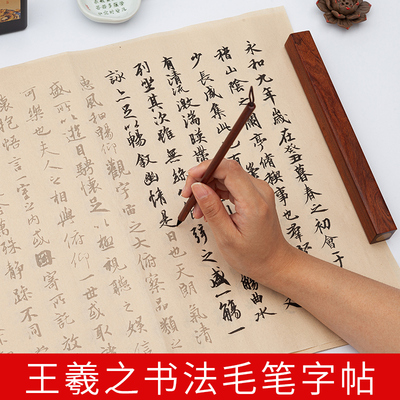 永和九年歲在癸丑暮春之初會于
稽山陰之蘭亭脩稧事也群
少長咸集此
有清流激湍暎帶
觴曲水
列坐其次雖無絲
弦之盛一觴一
詠亦足以暢敘幽情是日也天朗氣清
惠風和暢仰觀宇宙之大俯察品類之
盛所以遊目騁懷足以極視聽之娛信
可樂也夫人之相與俯仰一世或取諸
懷抱悟言一室之內或
寄所託放
萬殊靜躁不同
王羲之书法毛笔字帖